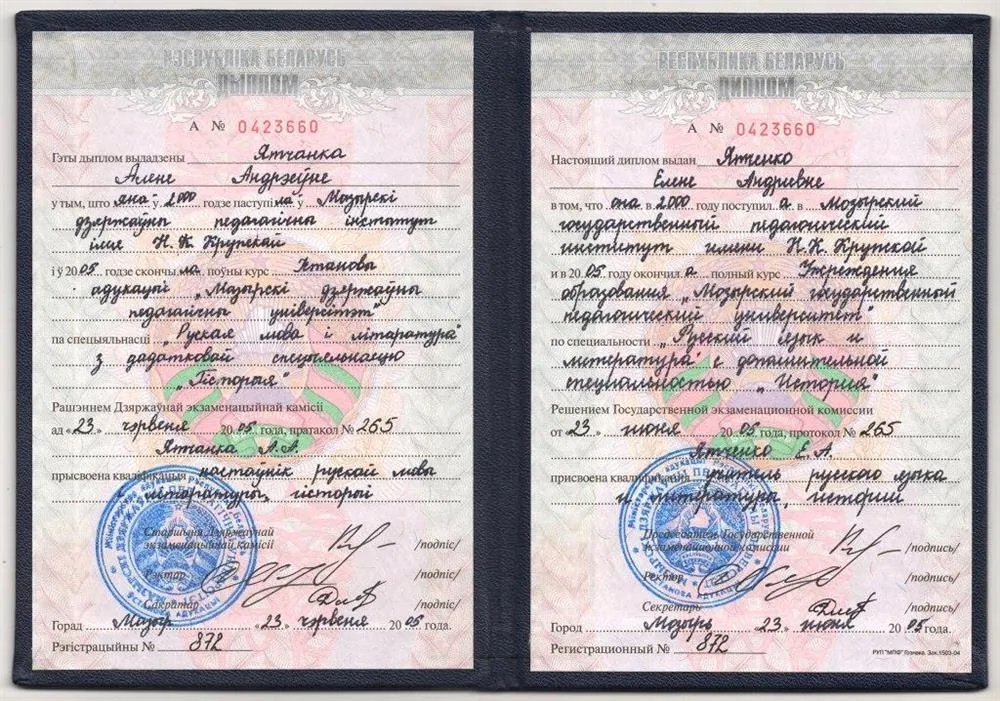 РЭСПУБЛІКА БЕЛАРУСЬ
ДЫПЛОМ
А № 0423660
Гэты дыплом выдадзены Ятчанка
Алене Андрэеўне
у тым, што яна ў 2000 годзе паступіла ў Мазырскі
дзяржаўны педагагічны інстытут
імя Н.К. Крупскай
і ў 2005 годзе скончыла поўны курс Установы
адукацыі „Мазырскі дзяржаўны
педагагічны універсітэт"
па спецыяльнасці „Руская мова і літаратура"
з дадатковай спецыяльнасцю
„Гісторыя"
Рашэннем Дзяржаўнай экзаменацыйнай камісіі
ад «23» чэрвеня 2005 года, пратакол № 265
Ятчанка А.А.
прысвоена кваліфікацыя настаўнік рускай мовы
літаратуры, гісторыі
Старшыня Дзяржаўнай
экзаменацыйнай камісіі /подпіс/
Рэктар /подпіс/
Сакратар /подпіс/
Горад Мазыр «23» чэрвеня 2005 года.
Рэгістрацыйны № 872
РЕСПУБЛИКА БЕЛАРУСЬ
ДИПЛОМ
А № 0423660
Настоящий диплом выдан Ятченко
Елене Андриевне
в том, что она в 2000 году поступила в Мозырский
государственный педагогический
институт имени Н.К. Крупской
и в 2005 году окончила полный курс Учреждения
образования „Мозырский государственный
педагогический университет"
по специальности „Русский язык и
литература" с дополнительной
специальностью „История"
Решением Государственной экзаменационной комиссии
от «23» июня 2005 года, протокол № 265
Ятченко Е.А.
присвоена квалификация учитель русского языка
и литературы, истории
Председатель Государственной
экзаменационной комиссии /подпись/
Ректор /подпись/
Секретарь /подпись/
Город Мозырь «23» июня 2005 года.
Регистрационный № 872
РУП "МПФ" Гознака. Зак.1503-04